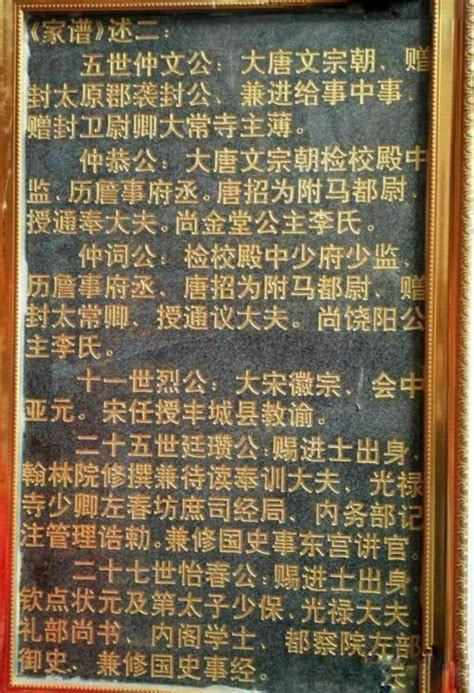 《家谱》述二：
五世仲文公：大唐文宗朝、赠
封太原郡袭封公、兼进给事中事、
赠封卫尉卿大常寺主薄。
仲恭公：大唐文宗朝检校殿中
监、历詹事府丞。唐招为附马都尉、
授通奉大夫。尚金堂公主李氏。
仲词公：检校殿中少府少监、
历詹事府丞、唐招为附马都尉、赠
封太常卿、授通议大夫。尚饶阳公
主李氏。
十一世烈公：大宋徽宗、会中
亚元。宋任授丰城县教谕。
二十五世廷瓒公：赐进士出身、
翰林院修撰兼待读奉训大夫、光禄
寺少卿左春坊庶司经局、内务部记
注管理浩勅。兼修国史事东宫讲官。
二十七世怡春公：赐进士出身、
钦点状元及第太子少保、光禄大夫、
礼部尚书、内阁学士、都察院左部
御史、兼修国史事经。